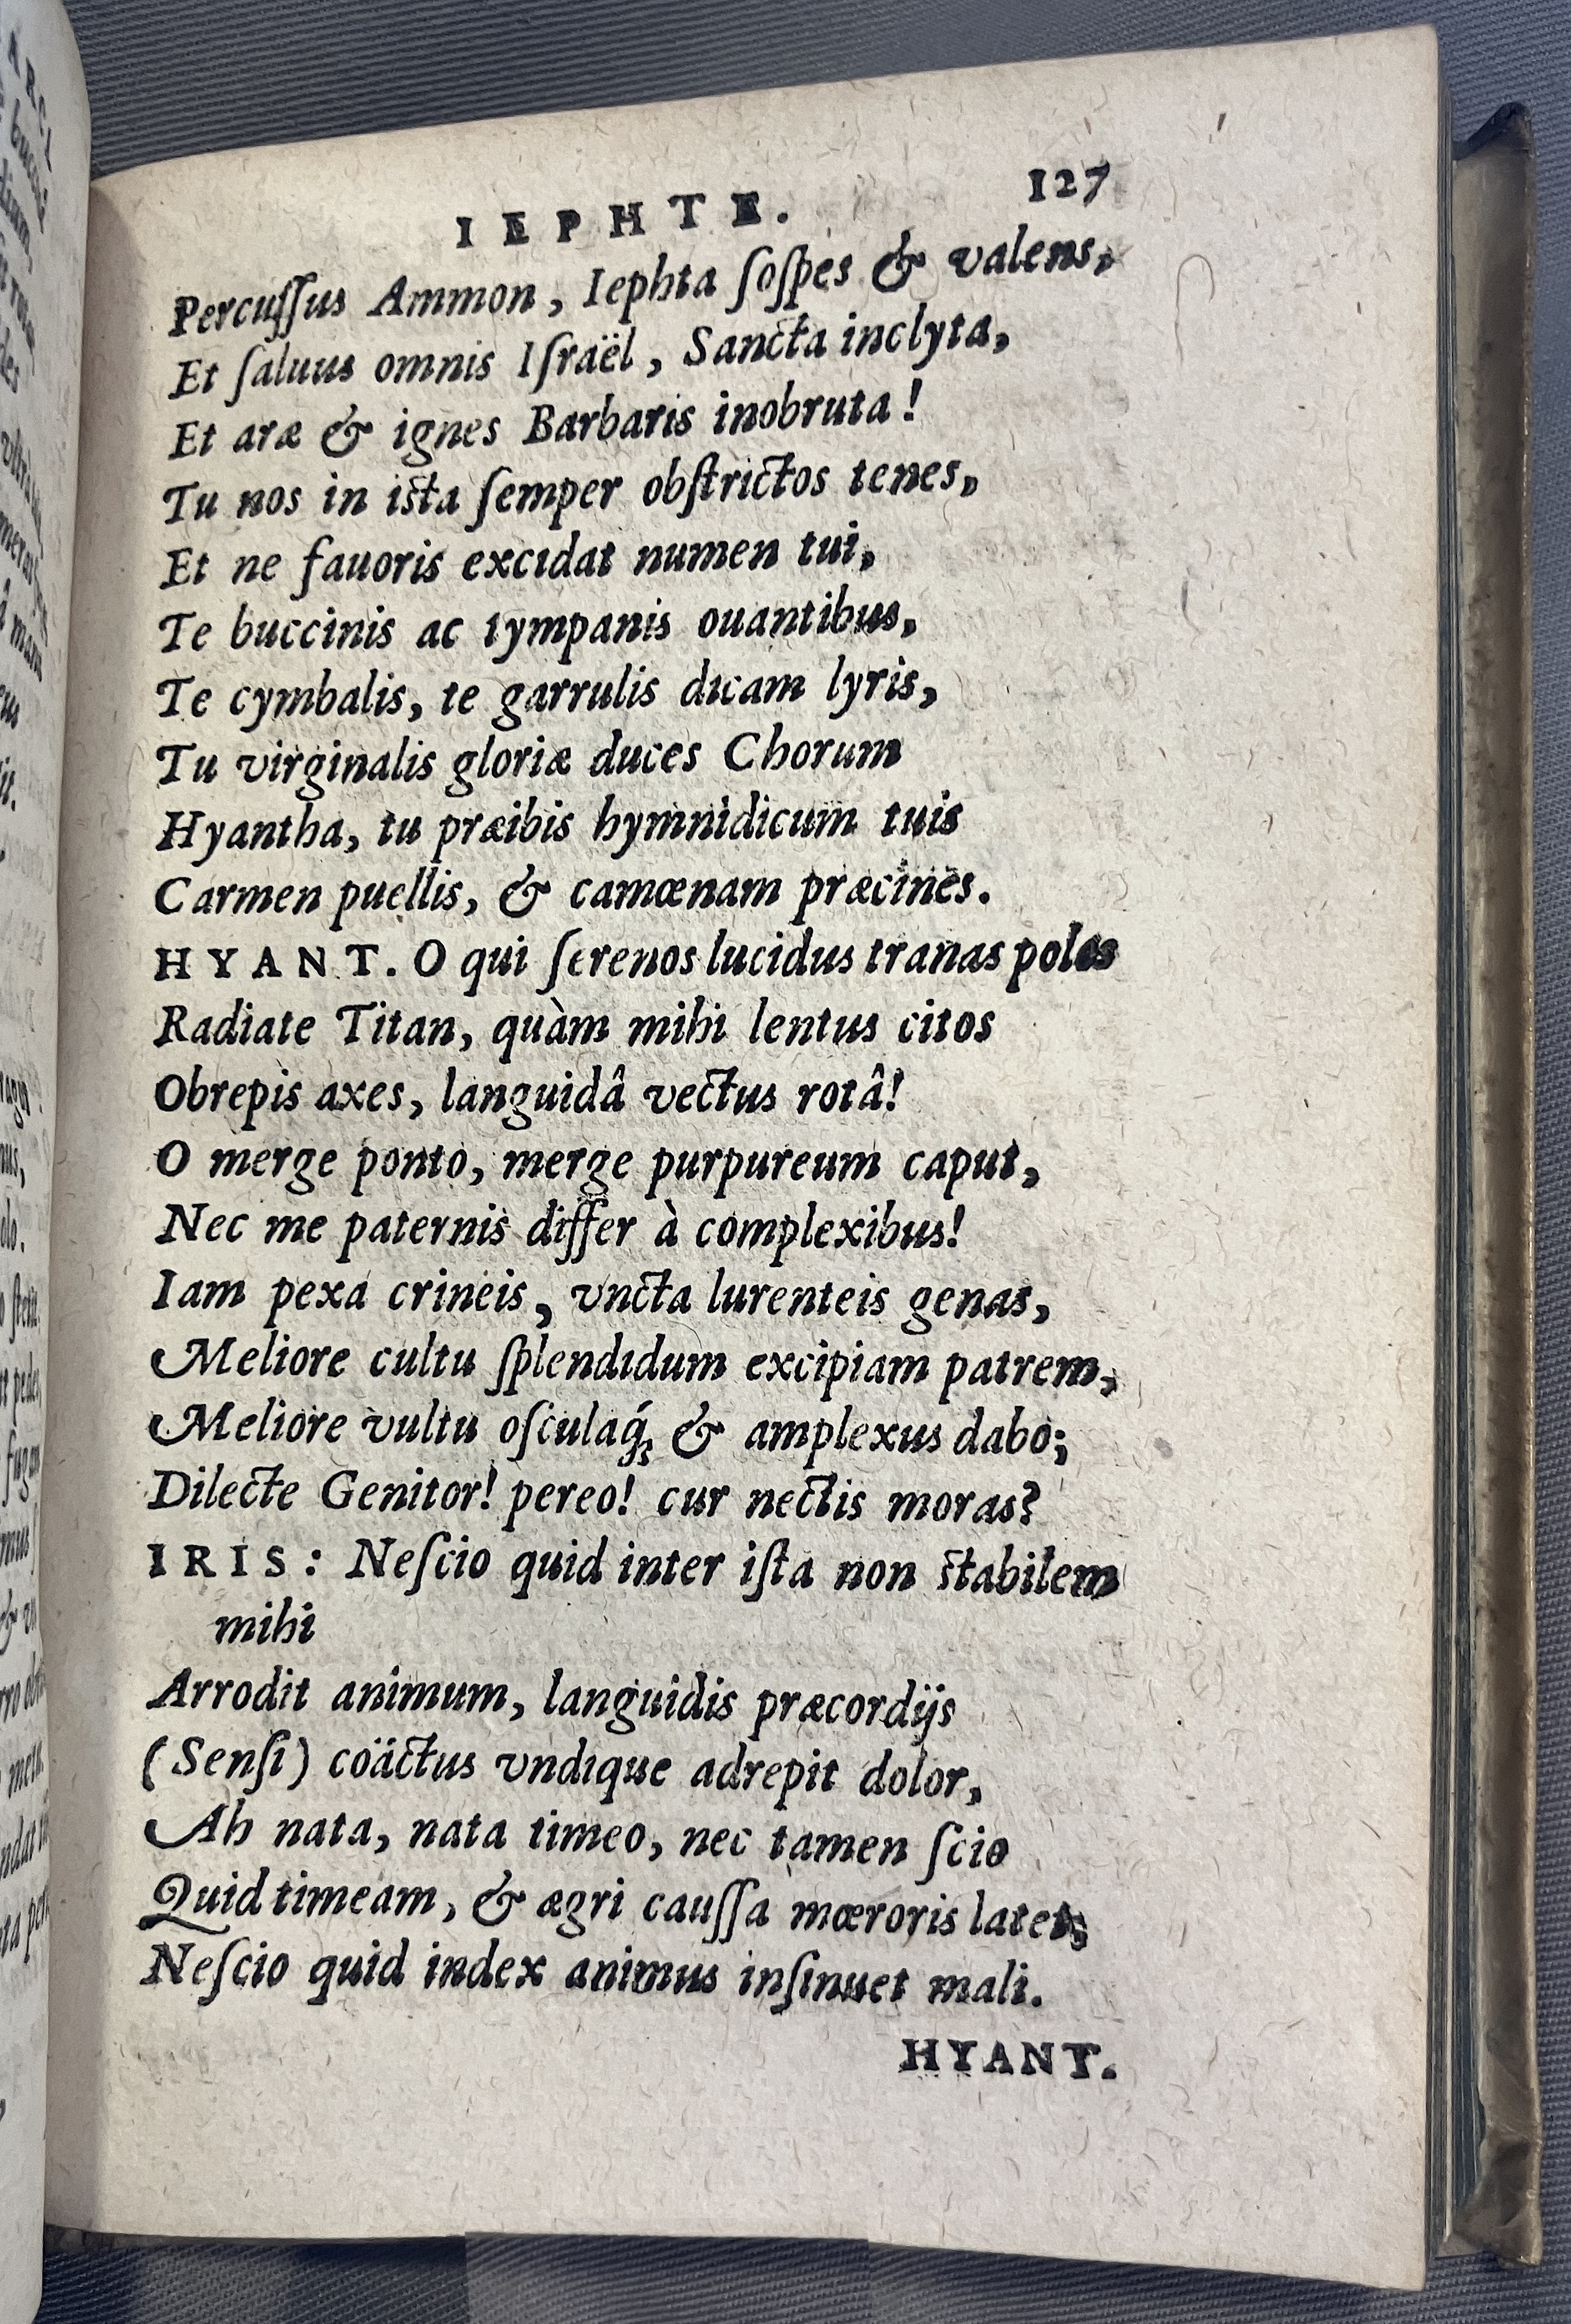 IEPHTE. 127
Percuſſus Ammon, Iephta ſoſpes & valens,
Et ſaluus omnis Iſraël, Sancta inclyta,
Et aræ & ignes Barbaris inobruta!
Tu nos in iſta ſemper obſtrictos tenes,
Et ne fauoris excidat numen tui,
Te buccinis ac tympanis ouantibus,
Te cymbalis, te garrulis dicam lyris,
Tu virginalis gloriæ duces Chorum
Hyantha, tu præibis hymnidicum tuis
Carmen puellis, & camœnam præcines.
HYANT. O qui ſerenos lucidus tranas polos
Radiate Titan, quàm mihi lentus citos
Obrepis axes, languidâ vectus rotâ!
O merge ponto, merge purpureum caput,
Nec me paternis differ à complexibus!
Iam pexa crineis, vncta lurenteis genas,
Meliore cultu ſplendidum excipiam patrem,
Meliore vultu oſculaq́; & amplexus dabo;
Dilecte Genitor! pereo! cur nectis moras?
IRIS: Neſcio quid inter iſta non ſtabilem
mihi
Arrodit animum, languidis præcordijs
(Senſi) coäctus vndique adrepit dolor,
Ah nata, nata timeo, nec tamen ſcio
Quid timeam, & ægri cauſſa mœroris latet;
Neſcio quid index animus inſinuet mali.
HYANT.